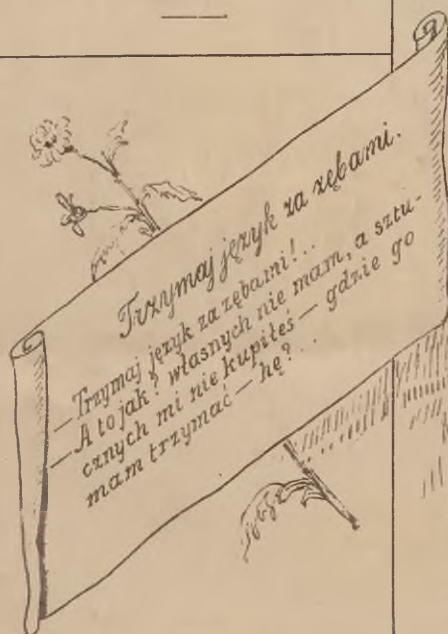 Trzymaj język za zębami.
— Trzymaj język za zębami!..
— A to jak? własnych nie mam, a sztu-
cznych mi nie kupiłeś — gdzie go
mam trzymać — hę?...